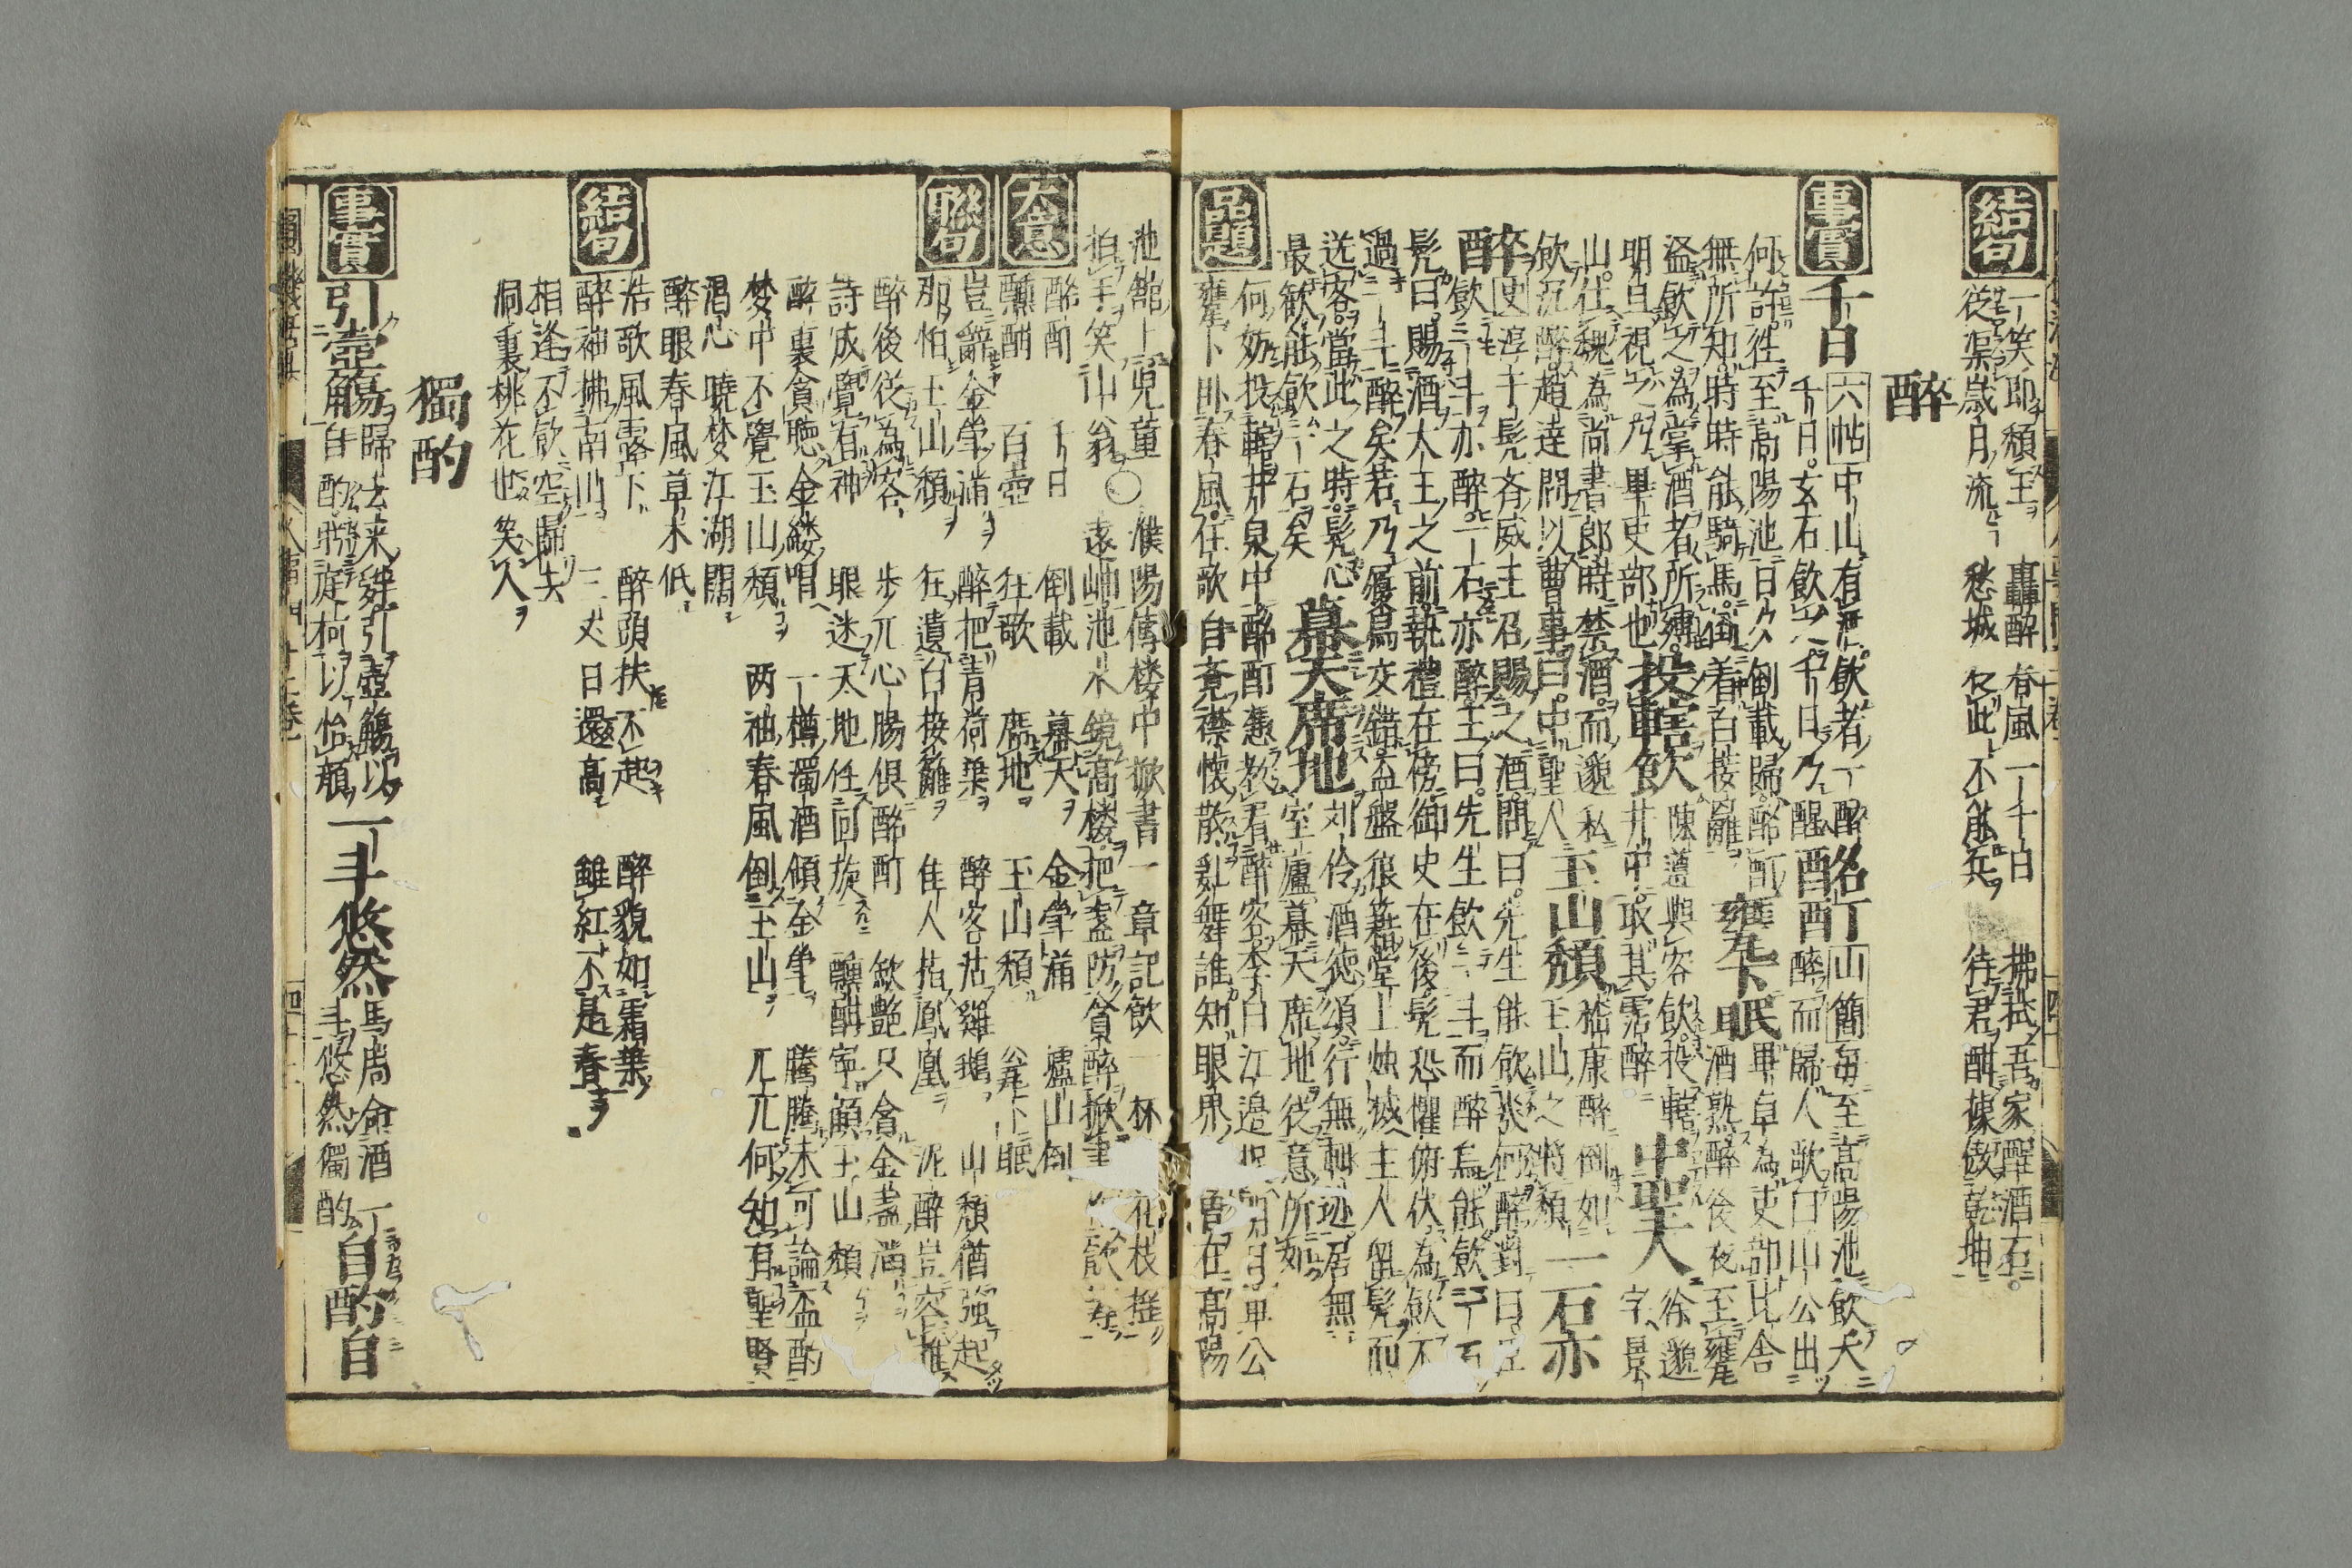 結句
一笑即頽玉 轟醉春風一千日 拂拭吾家醒酒石
從渠歳月流 愁城仗此不能兵 待君酣據傲乾坤
醉
事實
千日 六帖 中山有酒飲者一醉
千日玄石飲之千日乃醒
酩酊 山簡每至高陽池飲大
醉而歸人歌曰山公出
何許徃至高陽池日夕倒載歸酩酊
無所知時時能騎馬倒着白接䍦
甕下眠 畢卓為吏部比舎
酒熟醉後夜至甕
盗飲之為掌酒者所縛
明旦視之乃畢吏部也
投轄飲 陳遵與客飲投轄
井中取其霑醉
中聖人 徐邈
字景
山仕魏為尚書郎時禁酒而邈私
飲沉醉趙達問以曹事曰中聖人
玉山頽 嵆康醉倒如
玉山之將頽
一石亦
醉 史淳于髠齊威王召賜之酒問曰先生能飲幾何醉對曰臣
飲一斗亦醉一石亦醉王曰先生飲一斗而醉烏能飲一石
髠曰賜酒大王之前執禮在傍御史在後髠恐懼俯伏為飲不
過一斗醉矣若乃履舃交錯盃盤狼藉堂上燭滅主人留髠而
送客當此之時髠心
最歡能飲一石矣
幕天席地 刘伶酒徳頌行無轍迹居無
室廬幕天席地從意所如
品題
何妨投轄井泉中酩酊慿教君醉客李白江邉明月畢公
甕下卧春風在歌自竟襟懐散乱舞誰知眼界在高陽
池館上兒童〇濮陽傳樓中掀書一章記飲一杯花枝
拍手笑山翁遠岫池水鏡高楼把盞防貧醉掀書
大意
酩酊 千日 倒載 幕天 金掌滿 爐山倒
醺酣 百壺 狂歌 席地 玉山頽 瓮下眠
聯句
豈辭金掌滿 醉把青荷葉 醉客沽雞鵝 山頽猶強起
那怕玉山頽 狂遺白接䍦 佳人指鳳凰 泥醉豈容推
醉後從為客 歩兀心腸倶酩酊 歛艶只貪金盞滿
詩成覺有神 眼迷天地任回旋 醺酣寧顧玉山頽
醉裏貪聴金縷唱 一樽濁酒傾金掌 騰騰未可論盃酌
夢中不覺玉山頽 两袖春風倒玉山 兀兀何知有聖賢
渇心曉夢江湖闊
醉眼春風草木低
結句
浩歌風露下 醉頭扶不起 醉貌如霜葉
醉神拂南山 三丈日還高 雖紅不是春
相逢不飲空歸去
洞裏桃花也笑人
獨酌
事實
引壺觴 歸去来辭引壺觴以
自酌眄庭柯以怡顔
一斗悠然 馬周命酒一
斗悠然獨酌
自酌自